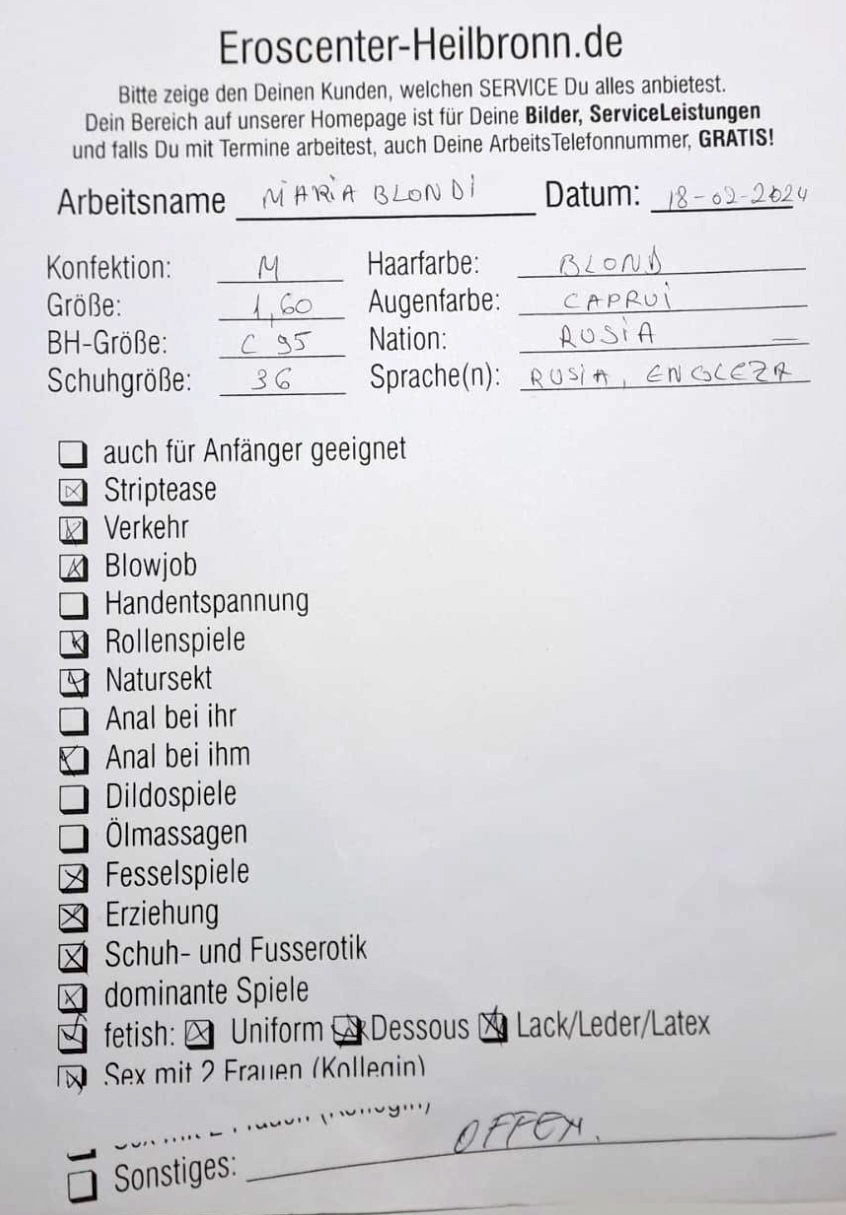 Eroscenter-Heilbronn.de
Bitte zeige den Deinen Kunden, welchen SERVICE Du alles anbietest.
Dein Bereich auf unserer Homepage ist für Deine Bilder, ServiceLeistungen
und falls Du mit Termine arbeitest, auch Deine ArbeitsTelefonnummer, GRATIS!
Arbeitsname MARIA BLONDI Datum: 18-02-2024
Konfektion: M Haarfarbe: BLOND
Größe: 1,60 Augenfarbe: CAPRUI
BH-Größe: C 95 Nation: RUSIA
Schuhgröße: 36 Sprache(n): RUSIA, ENGLEZA
auch für Anfänger geeignet
Striptease
Verkehr
Blowjob
Handentspannung
Rollenspiele
Natursekt
Anal bei ihr
Anal bei ihm
Dildospiele
Ölmassagen
Fesselspiele
Erziehung
Schuh- und Fusserotik
dominante Spiele
fetish: Uniform Dessous Lack/Leder/Latex
Sex mit 2 Frauen (Kollegin)
Sonstiges: OFFEN.